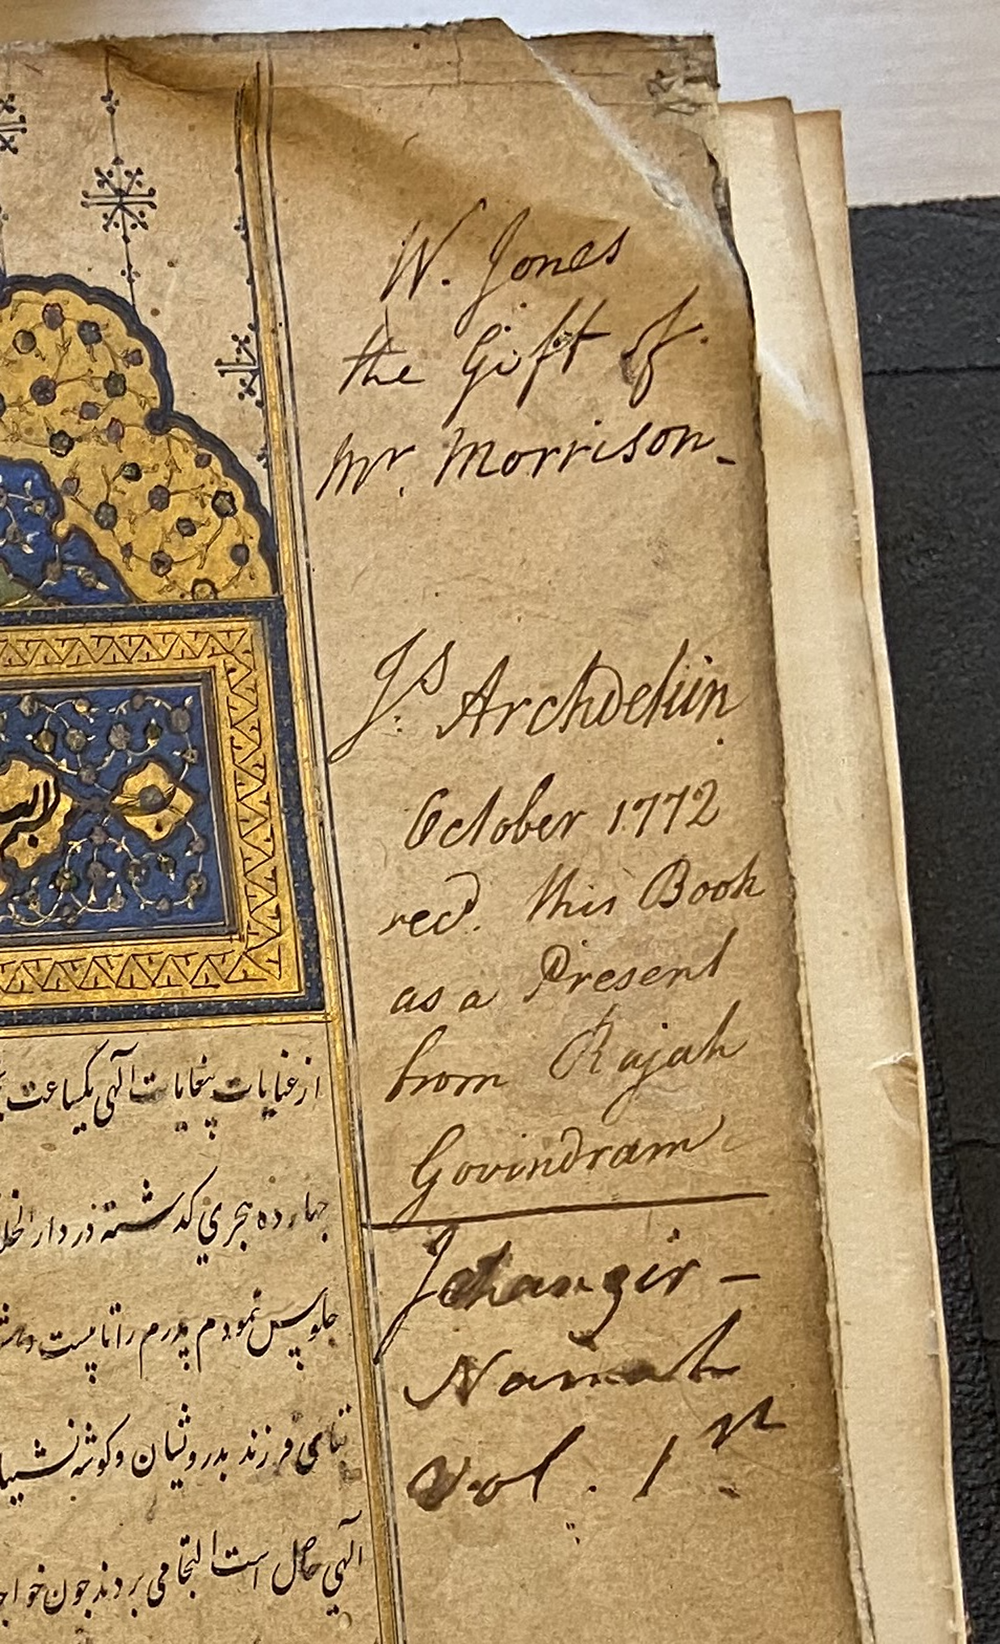 W. Jones
the Gift of
Mr. Morrison
Js. Archdekin
October 1772
recd. this Book
as a Present
from Rajah
Govindram
Jehangir -
Namah
Vol. 1st
از عنایات بیغایات الهی یکساعت
هجری گذشته در دار
جلوس نمودم پدرم را تا بیست
فرزند بدرویشان و کوشه
الهی حاصل است التجا می بردند چون